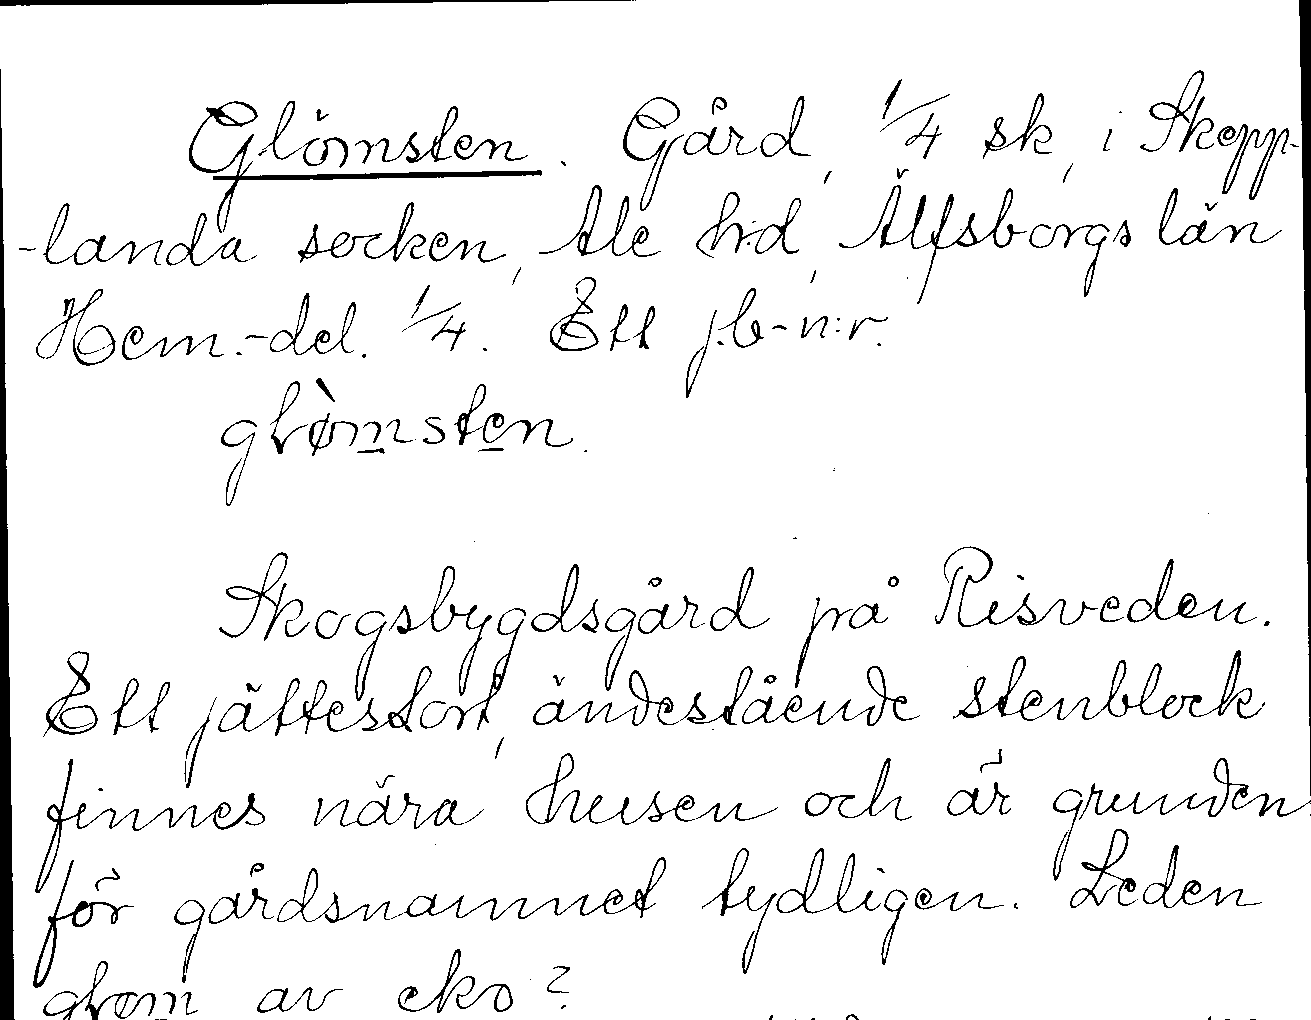 Glömsten. Gård, 1/4 sk, i Skepp-
-landa socken, Ale h:d, Älfsborgs län
Hem.-del. 1/4. Ett j.b-n:r.
glø̀msten.
Skogsbygdsgård på Risveden.
Ett jättestort, ändestående stenblock
finnes nära husen och är grunden
för gårdsnamnet tydligen. Leden
gløm av eko?